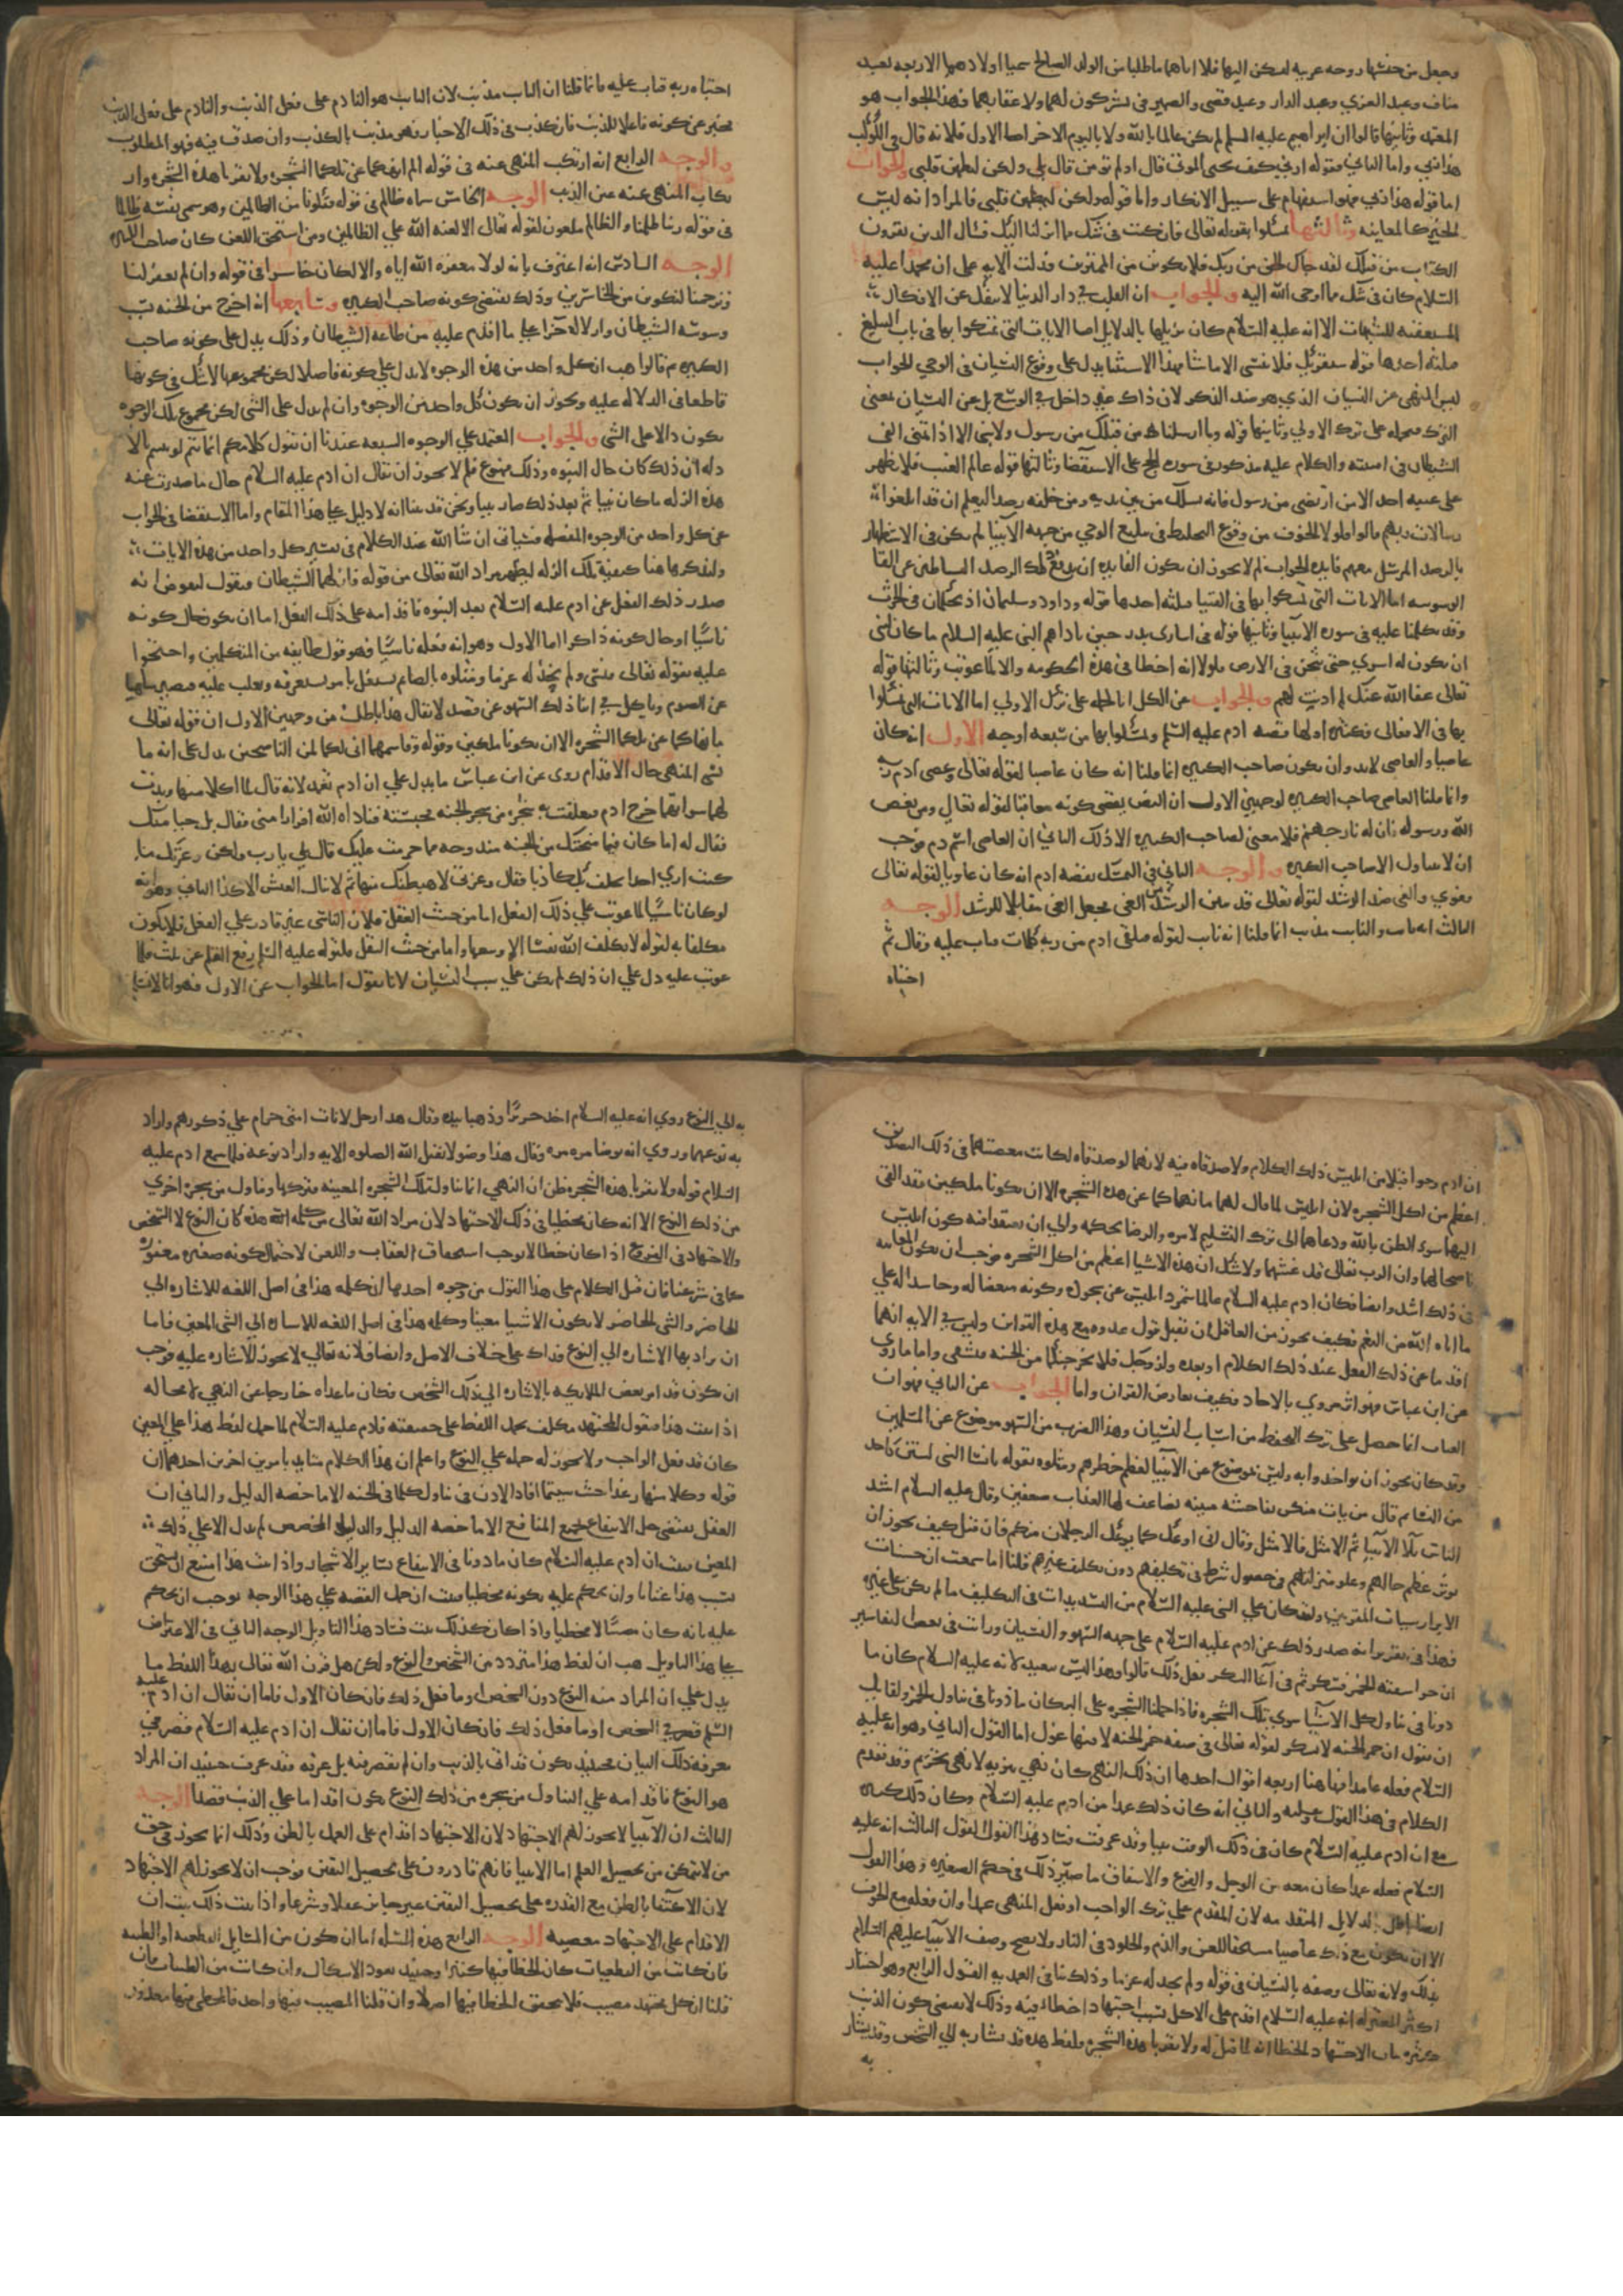 وجعل من جنسها زوجه عربيه ليسكن اليها فلما اتاهما ما طلبا من الولد الصالح سميا اولادهما الاربعه بعبد
مناف وعبد العزي وعبد الدار وعبد قصي والضمير في يشركون لهما ولاعقابهما فهذا الجواب هو
المعتمد وثانيها قالوا ان ابراهيم عليه السلم لم يكن عالما بالله ولا باليوم الاخر اما الاول فلانه قال في الكوكب
هذا ربي واما الثاني فقوله ارني كيف تحيي الموتي قال اولم تومن قال بلي ولكن ليطمئن قلبي والجواب
اما قوله هذا ربي فهو استفهام علي سبيل الانكار واما قوله ولكن ليطمئن قلبي فالمراد انه ليس
الخبر كالمعاينه وثالثها تمسكوا بقوله تعالي فان كنت في شك مما انزلنا اليك فسئال الذين يقرون
الكتاب من قبلك لقد جاك الحق من ربك فلا تكونن من الممترين فدلت الايه علي ان محمدا عليه
السلام كان في شك مما اوحي الله اليه والجواب ان القلب في دار الدنيا لا ينفك عن الافكار
المستعقبه للشبهات الا انه عليه السلام كان يزيلها بالدلايل اما الايات التي تمسكوا بها في باب التبليغ
فثلثه احدها قوله سنقرئك فلا تنسي الا ما شا فهذا الاستثنا يدل علي وقوع النسيان في الوحي الجواب
ليس النهي عن النسيان الذي هو ضد الذكر لان ذاك غير داخل في الوسع بل عن النسيان بمعني
الترك فنحمله علي ترك الاولي وثانيها قوله وما ارسلناك من قبلك من رسول ولا نبي الا اذا تمني القي
الشيطان في امنيته والكلام عليه مذكور في سوره الحج علي الاستقصا وثالثها قوله عالم الغيب فلا يظهر
علي غيبه احد الا من ارتضي من رسول فانه يسلك من بين يديه ومن خلفه رصدا ليعلم ان قد ابلغوا
رسالات ربهم قالوا فلولا الخوف من وقوع التخليط في تبليغ الوحي من جهه الانبيا لم يكن في الاستظهار
بالرصد المرسل معهم فايده الجواب لم لا يجوز ان تكون الفايده ان يدفع ذلك الرصد الشياطين عن القا
الوسوسه اما الايات التي تمسكوا بها في الفتيا فثلثه احدها قوله وداود وسليمان اذ يحكمان في الحرث
وقد تكلمنا عليه في سوره الانبيا وثانيها قوله في اساري بدر حين فاداهم النبي عليه السلام ما كان لنبي
ان يكون له اسري حتي يثخن في الارض فلولا انه اخطا في هذه الحكومه والا لما عوتب وثالثها قوله
تعالي عفا الله عنك لم اذنت لهم والجواب عن الكل انا نحمله علي ترك الاولي اما الايات التي تمسكوا
بها في الافعال فكثيره اولها قصه ادم عليه السلم وتمسكوا بها من سبعه اوجه الاول انه كان
عاصيا والعاصي لا بد وان يكون صاحب الكبيره انما قلنا انه كان عاصيا لقوله تعالي وعصي ادم ربه
وانما قلنا العاصي صاحب الكبيره لوجهين الاول ان النص يقتضي كونه معاقبا لقوله تعالي ومن يعص
الله ورسوله فان له نار جهنم فلا معني لصاحب الكبيره الا ذلك الثاني ان العاصي اسم ذم فوجب
ان لا يتناول الا صاحب الكبيره والوجه الثاني في التمسك بقصه ادم انه كان غاويا لقوله تعالي
فغوي والغي ضد الرشد لقوله تعالي قد تبين الرشد من الغي فجعل الغي مقابلا للرشد الوجه
الثالث انه تايب والتايب مذنب انما قلنا انه تايب لقوله فتلقي ادم من ربه كلمات فتاب عليه وقال ثم
اجتباه
اجتباه ربه فتاب عليه وانما قلنا ان التايب مذنب لان التايب هو النادم علي فعل الذنب والنادم علي فعل الذنب
مخبر عن كونه فاعلا للذنب فان كذب في ذلك الاخبار فهو مذنب بالكذب وان صدق فيه فهو المطلوب
والوجه الرابع انه ارتكب المنهي عنه في قوله الم انهكما عن تلكما الشجره ولا تقربا هذه الشجره وار
تكاب المنهي عنه عين الذنب الوجه الخامس سماه ظالم في قوله فتكونا من الظالمين وهو سمي نفسه ظالما
في قوله ربنا ظلمنا والظالم ملعون لقوله تعالي الا لعنه الله علي الظالمين ومن استحق اللعن كان صاحب الكبيره
الوجه السادس انه اعترف بانه لولا مغفره الله اياه والا لكان خاسرا في قوله وان لم تغفر لنا
وترحمنا لنكونن من الخاسرين وذلك يقتضي كونه صاحب الكبيره وسابعها انه اخرج من الجنه بسبب
وسوسه الشيطان وازلاله جزا علي ما اقدم عليه من طاعه الشيطان وذلك يدل علي كونه صاحب
الكبيره ثم قالوا هب ان كل واحد من هذه الوجوه لا يدل علي كونه فاعلا لكن مجموعها لا شك في كونها
قاطعا في الدلاله عليه ويجوز ان يكون كل واحد من الوجوه وان لم يدل علي الشي لكن مجموع تلك الوجوه
يكون دالا علي الشي والجواب المعتمد علي الوجوه السبعه عندنا ان نقول كلامكم انما يتم لو اتيتم بالا
دله ان ذلك كان حال النبوه وذلك ممنوع فلم لا يجوز ان يقال ان ادم عليه السلام حال ما صدرت عنه
هذه الزله ما كان نبيا ثم بعد ذلك صار نبيا ونحن قد بينا انه لا دليل علي هذا المقام واما الاستقصا في الجواب
عن كل واحد من الوجوه المفصله فسياتي ان شا الله عند الكلام في تفسير كل واحد من هذه الايات
ولنذكر هاهنا كيفيه تلك الزله ليظهر مراد الله تعالي من قوله فازلهما الشيطان فنقول لنفرض انه
صدر ذلك الفعل عن ادم عليه السلام بعد النبوه فاقدامه علي ذلك الفعل اما ان يكون حال كونه
ناسيا او حال كونه ذاكرا اما الاول وهو انه فعله ناسيا فهو قول طايفه من المتكلمين واحتجوا
عليه بقوله تعالي فنسي ولم نجد له عزما ومثلوه بالصايم يشتغل بامر يستغرقه ويغلب عليه فيصير ساهيا
عن الصوم وياكل في اثنا ذلك السهو عن قصد لا يقال هذا باطل من وجهين الاول ان قوله تعالي
ما نهاكما عن تلكما الشجره الا ان تكونا ملكين وقوله وقاسمهما اني لكما لمن الناصحين يدل علي انه ما
نسي المنهي حال الاقدام روي عن ابن عباس ما يدل علي ان ادم تعمد لانه قال لما اكلا منها وبدت
لهما سواتهما خرج ادم فتعلقت به شجره من شجر الجنه فحبسته فناداه الله افرارا مني فقال بل حيا منك
فقال له اما كان فيما منحتك من الجنه مندوحه مما حرمت عليك قال بلي يا رب ولكن وعزتك ما
كنت اري احدا يحلف بك كاذبا فقال وعزتي لاهبطنك منها ثم لا تنال العيش الا كدا الثاني وهو انه
لو كان ناسيا لما عوتب علي ذلك الفعل اما من حيث العقل فلان الناسي غير قادر علي الفعل فلا يكون
مكلفا به لقوله لا يكلف الله نفسا الا وسعها واما من حيث النقل فلقوله عليه السلم رفع القلم عن ثلث فلما
عوتب عليه دل علي ان ذلك لم يكن علي سبيل النسيان لانا نقول اما الجواب عن الاول فهو انا لا نسلم
ان ادم وحوا قبلا من ابليس ذلك الكلام ولا صدقاه فيه لانهما لو صدقاه لكانت معصيتهما في ذلك التصديق
اعظم من اكل الشجره لان ابليس لما قال لهما ما نهاكما عن هذه الشجره الا ان تكونا ملكين فقد القي
اليهما سوء الظن بالله ودعاهما الي ترك التسليم لامره والرضا بحكمه والي ان يعتقدا فيه كون ابليس
ناصحا لهما وان الرب تعالي قد غشهما ولا شك ان هذه الاشيا اعظم من اكل الشجره فوجب ان يكون المعاتبه
في ذلك اشد وايضا فكان ادم عليه السلام عالما بتمرد ابليس عن سجوده وكونه مبغضا له وحاسدا له علي
ما اتاه الله من النعم فكيف يجوز من العاقل ان يقبل قول عدوه مع هذه القراين وليس في الايه انهما
اقدما عن ذلك الفعل عند ذلك الكلام او بعده ولزوجك فلا يخرجنكما من الجنه فتشقي واما ما روي
عن ابن عباس فهو اثر مروي بالاحاد فكيف يعارض القران واما الجواب عن الثاني فهو ان
العتاب انما حصل علي ترك التحفظ من اسباب النسيان وهذا الضرب من السهو موضوع عن المسلمين
وقد كان يجوز ان يواخذوا به وليس بموضوع عن الانبيا لعظم خطرهم ومثلوه بقوله يا نسا النبي لستن كاحد
من النسا ثم قال من يات منكن بفاحشه مبينه يضاعف لها العذاب ضعفين وقال عليه السلام اشد
الناس بلا الانبيا ثم الامثل فالامثل وقال اني اوعك كما يوعك الرجلان منكم فان قيل كيف يجوز ان
يوثر عظم حالهم وعلو منزلتهم في حصول شرط في تكليفهم دون تكليف غيرهم قلنا اما سمعت ان حسنات
الابرار سيات المقربين ولقد كان علي النبي عليه السلام من التشديدات في التكليف ما لم يكن علي غيره
فهذا في تقرير انه صدر ذلك عن ادم عليه السلام علي جهه السهو والنسيان ورايت في بعض التفاسير
ان حوا سقته الخمر فسكر ثم في اثنا السكر فعل ذلك قالوا وهذا ليس ببعيد لانه عليه السلام كان ما
ذونا في تناول كل الاشيا سوي تلك الشجره فاذا حملنا الشجره علي البر كان ماذونا في تناول الخمر ولقايل
ان يقول ان خمر الجنه لا يسكر لقوله تعالي في صفه خمر الجنه لا فيها غول اما القول الثاني وهو انه عليه
السلام فعله عامدا فها هنا اربعه اقوال احدها ان ذلك النهي كان نهي تنزيه لا نهي تحريم وقد تقدم
الكلام في هذا القول وعلته والثاني انه كان ذلك عمدا من ادم عليه السلام وكان ذلك كبيره
مع ان ادم عليه السلام كان في ذلك الوقت نبيا وقد عرفت فساد هذا القول القول الثالث انه عليه
السلام فعله عمدا كان معه من الوجل والفزع والاشفاق ما صير ذلك في حكم الصغيره وهذا القول
ايضا باطل لدلايل المتقدمه لان المقدم علي ترك الواجب او فعل المنهي عمدا وان فعله مع الخوف
الا ان يكون مع ذلك عاصيا مستحقا للعن والذم والخلود في النار ولا يصح وصف الانبيا عليهم السلام
بذلك ولانه تعالي وصفه بالنسيان في قوله ولم نجد له عزما وذلك ينافي العمديه القول الرابع وهو اختيار
اكثر المعتزله انه عليه السلام اقدم علي الاكل بسبب اجتهاد اخطا فيه وذلك لا يقتضي كون الذنب
كبيره بيان الاجتهاد الخطا انه لما قيل له ولا تقربا هذه الشجره فلفظ هذه قد يشار به الي الشخص وقد يشار
به
به الي النوع روي انه عليه السلام اخذ حريرا وذهبا بيده وقال هذان حل لاناث امتي حرام علي ذكورهم واراد
به نوعهما وروي انه توضا مره مره وقال هذا وضو لا يقبل الله الصلوه الا به واراد نوعه فلما سمع ادم عليه
السلام قوله ولا تقربا هذه الشجره ظن ان النهي انما يتناول تلك الشجره المعينه فتركها وتناول من شجره اخري
من ذلك النوع الا انه كان مخطيا في ذلك الاجتهاد لان مراد الله تعالي من كلمه هذه كان النوع لا الشخص
والاجتهاد في الفروع اذا كان خطا لا يوجب استحقاق العقاب واللعن لاحتمال كونه صغيره مغفوره
كما في شرعنا فان قيل الكلام علي هذا القول من وجوه احدها ان كلمه هذا في اصل اللغه للاشاره الي
الحاضر والشي الحاضر لا يكون الا شيا معينا وكلمه هذا في اصل اللغه للاشاره الي الشي المعين فاما
ان يراد بها الاشاره الي النوع فذاك علي خلاف الاصل وايضا فلانه تعالي لا يجوز الاشاره عليه فوجب
ان يكون قد امر بعض الملايكه بالاشاره الي ذلك الشخص فكان ما عداه خارجا عن النهي لا محاله
اذا ثبت هذا فنقول المجتهد مكلف بحمل اللفظ علي حقيقته فادم عليه السلام لما حمل لفظ هذا علي المعين
كان قد فعل الواجب ولا يجوز له حمله علي النوع واعلم ان هذا الكلام متايد بامرين اخرين احدهما ان
قوله وكلا منها رغدا حيث شيتما افاد الاذن في تناول كلما في الجنه الا ما خصه الدليل والثاني ان
العقل يقتضي حل الانتفاع بجميع المنافع الا ما خصه الدليل والدليل المخصص لم يدل الا علي ذلك
المعين فثبت ان ادم عليه السلام كان ماذونا في الانتفاع بساير الاشجار واذا ثبت هذا امتنع ان يستحق
بسبب هذا عتابا وان يحكم عليه بكونه مخطيا فثبت ان حمل القصه علي هذا الوجه يوجب ان يحكم
عليه بانه كان مصيبا لا مخطيا واذا كان كذلك ثبت فساد هذا التاويل الوجه الثاني في الاعتراض
علي هذا التاويل هب ان لفظ هذا متردد بين الشخص والنوع ولكن هل قرن الله تعالي بهذا اللفظ ما
يدل علي ان المراد منه النوع دون الشخص او ما فعل ذلك فان كان الاول فاما ان يقال ان ادم عليه
السلم قصر في الشخص او ما فعل ذلك فان كان الاول فاما ان يقال ان ادم عليه السلام قصر في
معرفه ذلك البيان فحينئذ يكون قد اتي بالذنب وان لم يقصر فيه بل عرفه فقد عرف حينئذ ان المراد
هو النوع فاقدامه علي التناول من شجره من ذلك النوع يكون اقداما علي الذنب قصدا الوجه
الثالث ان الانبيا لا يجوز لهم الاجتهاد لان الاجتهاد اقدام علي العمل بالظن وذلك انما يجوز في حق
من لا يتمكن من تحصيل العلم اما الانبيا فانهم قادرون علي تحصيل اليقين فوجب ان لا يجوز لهم الاجتهاد
لان الاكتفا بالظن مع القدره علي تحصيل اليقين غير جايز عقلا وشرعا واذا ثبت ذلك ثبت ان
الاقدام علي الاجتهاد معصيه الوجه الرابع هذه المسئله اما ان تكون من المسايل القطعيه او الظنيه
فان كانت من القطعيات كان الخطا فيها كبيرا وحينئذ يعود الاشكال وان كانت من الظنيات فان
قلنا ان كل مجتهد مصيب فلا يتحقق الخطا فيها اصلا وان قلنا المصيب فيها واحد فالمخطي فيها معذور